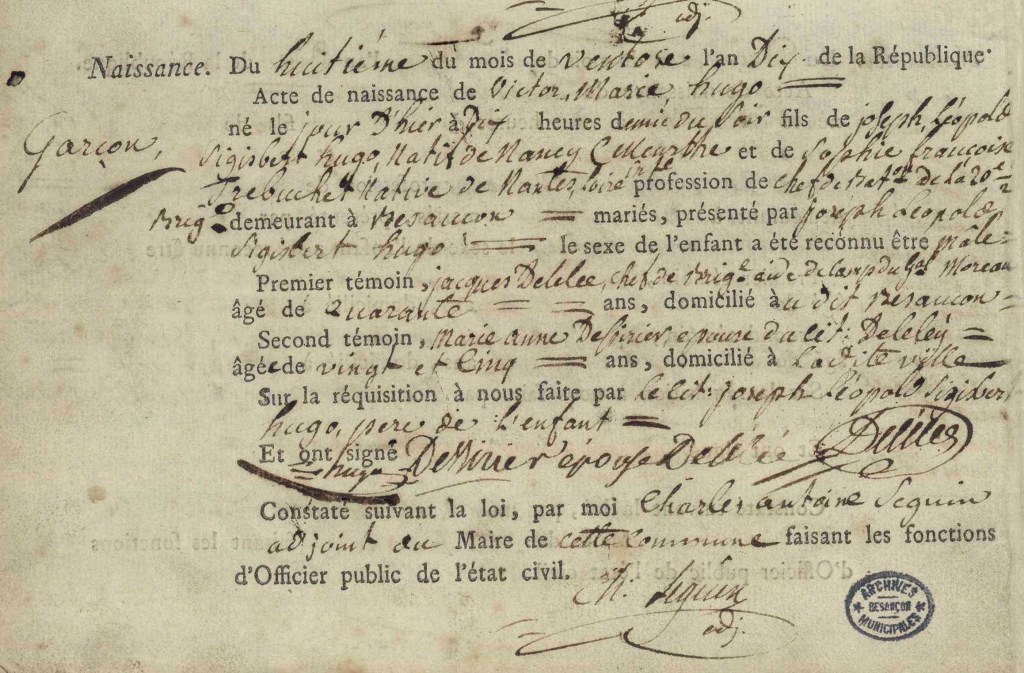 adj.
Naissance. Du huitième du mois de ventose l'an Dix de la République
Acte de naissance de Victor, Marie hugo =
Garçon,
né le jour D'hier à Dix heures demie du Soir fils de joseph, Léopold
Sigisbert hugo, Natif de Nancy (Meurthe et de Sophie françoise
Trebuchet Native de Nantes, Loire profession de chef de Baton de la 20e
Brigde demeurant à Besançon = mariés, présenté par joseph Léopold
Sigisbert hugo = le sexe de l'enfant a été reconnu être mâle =
Premier témoin, jacques Delelée, chef de Brige aide de camp du Gal Moreau
âgé de Quarante = = ans, domicilié àu dit Besançon =
Second témoin, Marie anne Dessirier, epouse du cit: Delelée =
âgée de vingt et Cinq = ans, domicilié à Ladite ville
Sur la réquisition à nous faite par le cit: joseph Léopold Sigisbert
hugo, pere de L'enfant =
Et ont signé Dessirier épouse Delelée Delelée
= hugo
Constaté suivant la loi, par moi Charles antoine Seguin
adjoint au Maire de cette Commune faisant les fonctions
d'Officier public de l'état civil.
Ch. Seguin
adj.
ARCHIVES
BESANÇON
MUNICIPALES